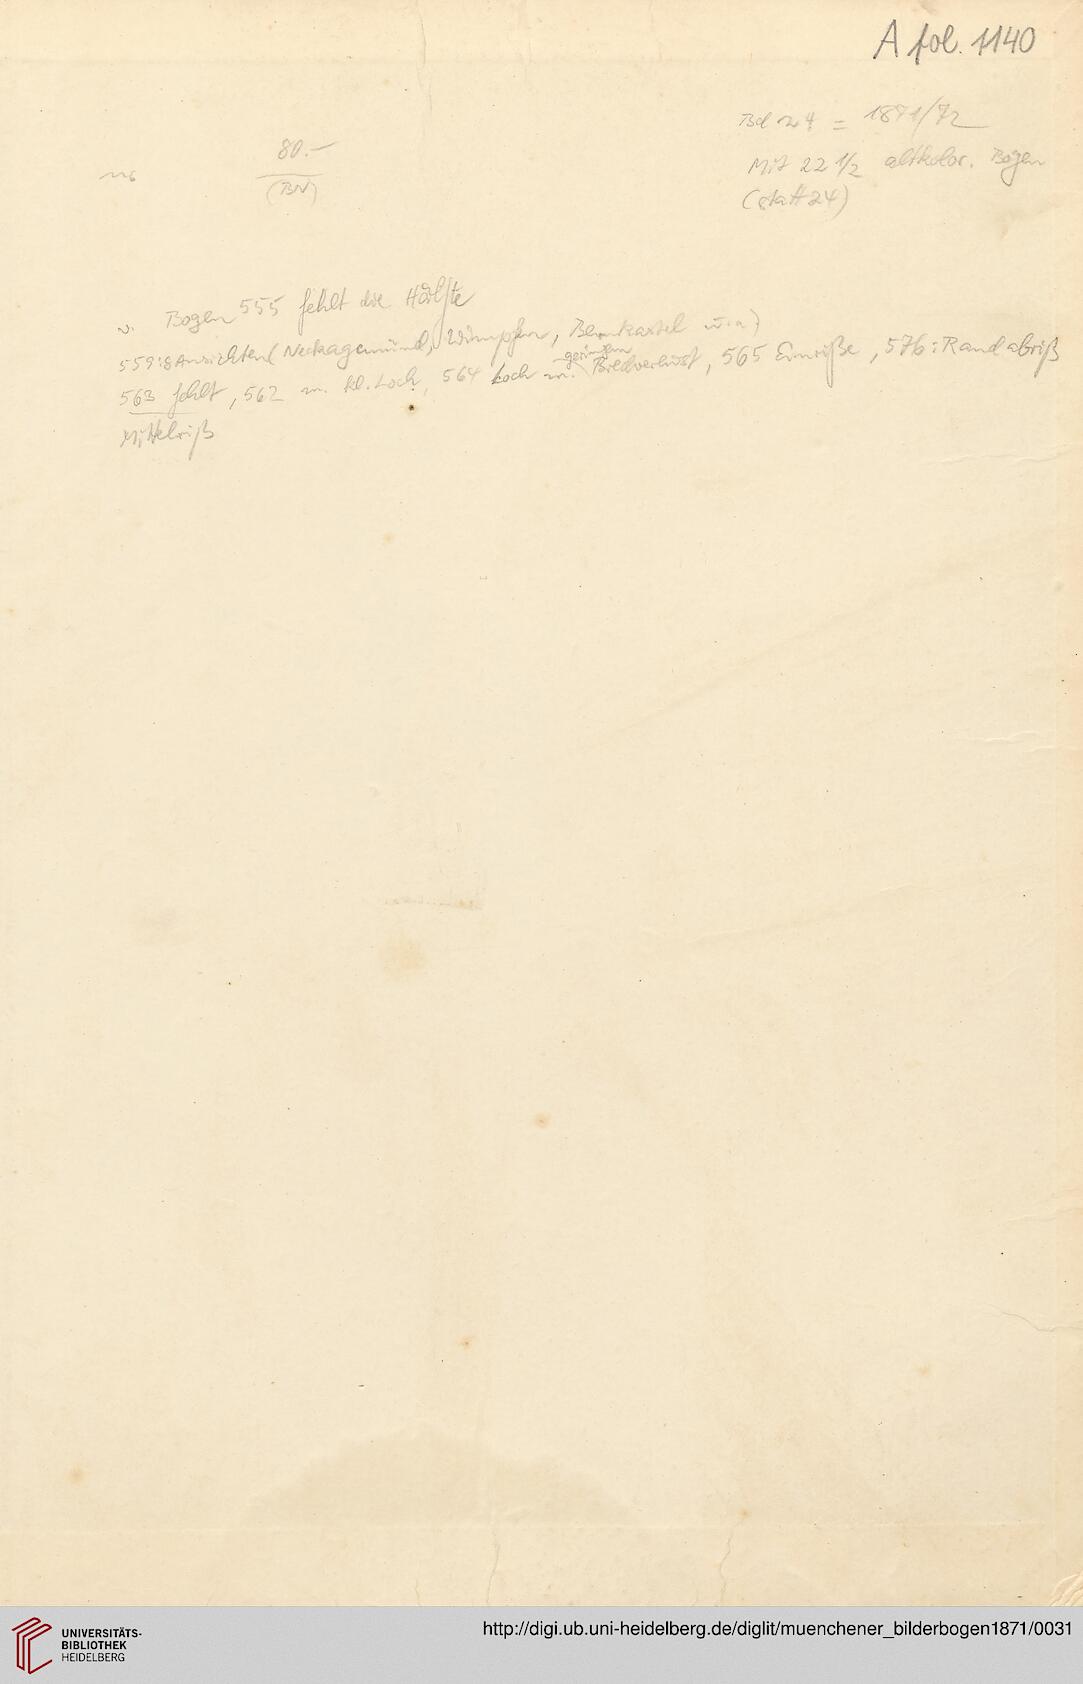 A fol. 1140
Bd 24 = 1871/72
80.-
Mit 22 1/2 altkolor. Bogen
(BN)
(statt 24)
v. Bogen 555 fehlt die Hälfte
559: 8 Ansichten (Neckagemünd, Wimpfen, Bernkastel u. a)
563 fehlt, 562 m. kl. Loch, 564 Loch m. geringem Bildverlust, 565 Einriße, 576: Randabriß
Mittelriß
UNIVERSITÄTS-
BIBLIOTHEK
HEIDELBERG
http://digi.ub.uni-heidelberg.de/diglit/muenchener_bilderbogen1871/0031